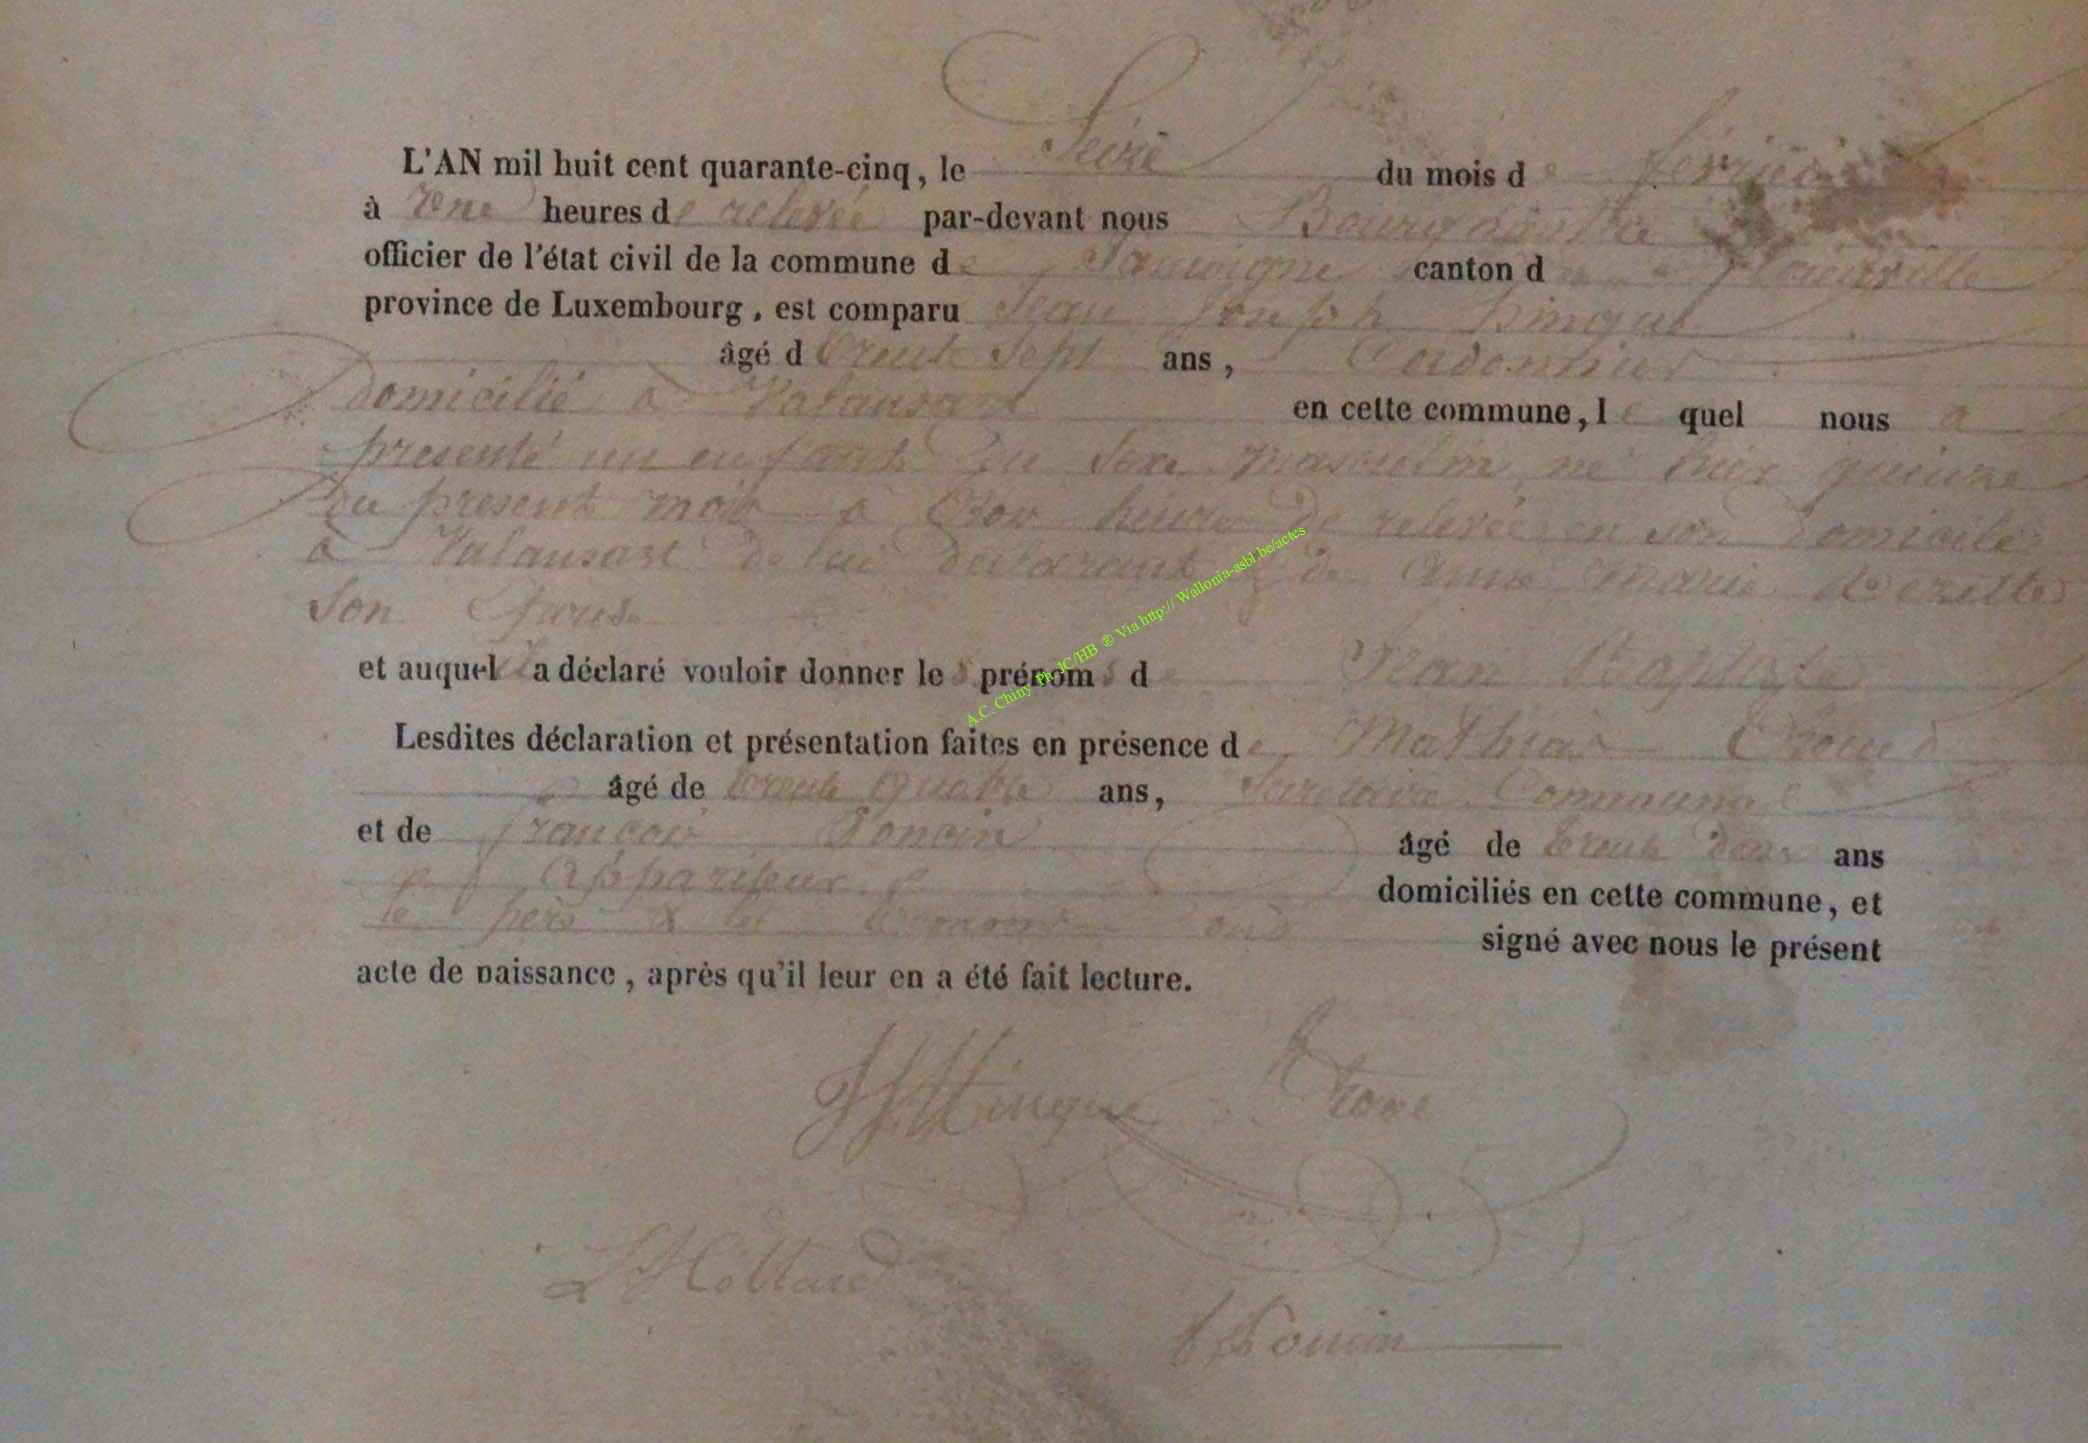 L'AN mil huit cent quarante-cinq, le Seize du mois de fevrier
à Une heures de relevée par-devant nous Bourgmestre
officier de l'état civil de la commune de Jamoigne canton de florenville
province de Luxembourg, est comparu Jean Joseph hinque
âgé de trente sept ans, Cordonnier
domicilié à Valansart en cette commune, lequel nous a
presenté un enfant du sexe masculin, né hier quinze
du present mois à trois heures de relevée en son domicile
à Valansart de lui declarant & de Anne Marie
Son Epouse
et auquel il a déclaré vouloir donner les prénoms de Jean Baptiste
Lesdites déclaration et présentation faites en présence de Mathias
âgé de trente quatre ans, Communal
et de françois Poncin âgé de trente deux ans
Appariteur domiciliés en cette commune, et
le père & les temoins ont signé avec nous le présent
acte de naissance, après qu'il leur en a été fait lecture.
JJHinque
LHottard
Poncin
A.C. Chiny Ph. JC/HB ® Via http:// Wallonia-asbl.be/actes